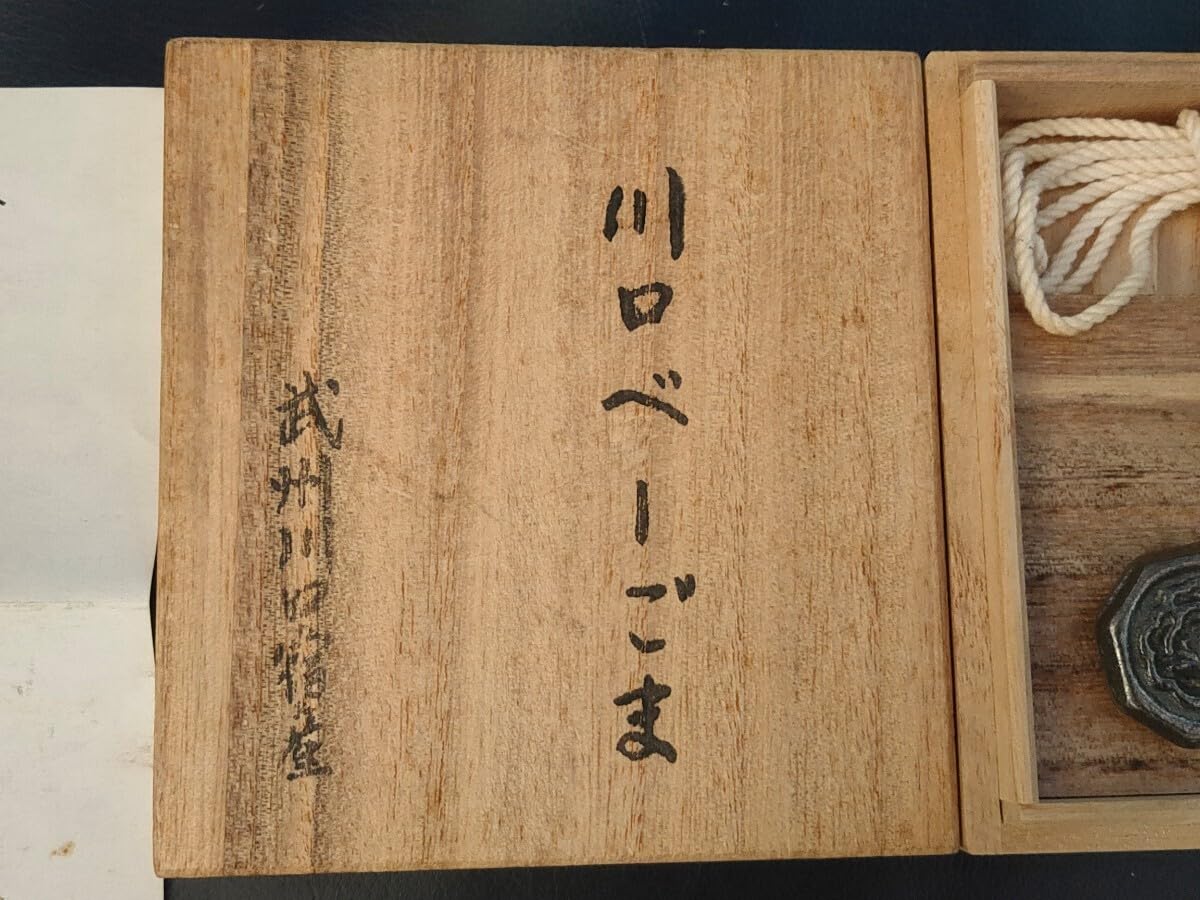 川口べーごま
武州川口宿産